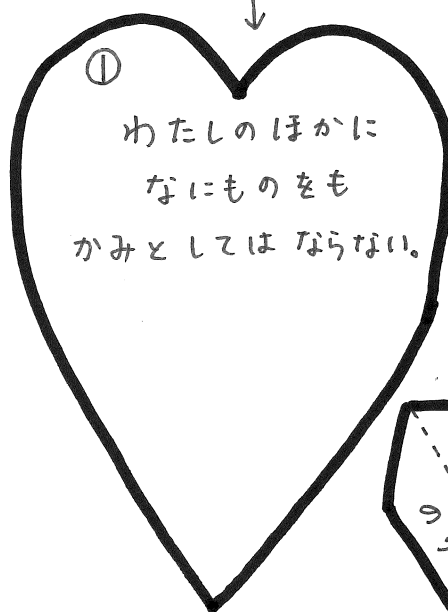 ①
わたしの ほかに
なにものをも
かみと しては ならない。
の